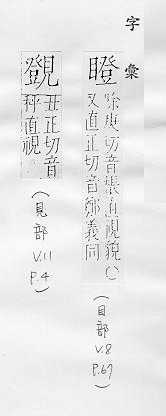 字彙
瞪
除庚切音棖直視貌
又直正切音鄭義同
(目部 V.8 P.67)
覴
丑正切音
秤直視
(見部 V.11 P.4)